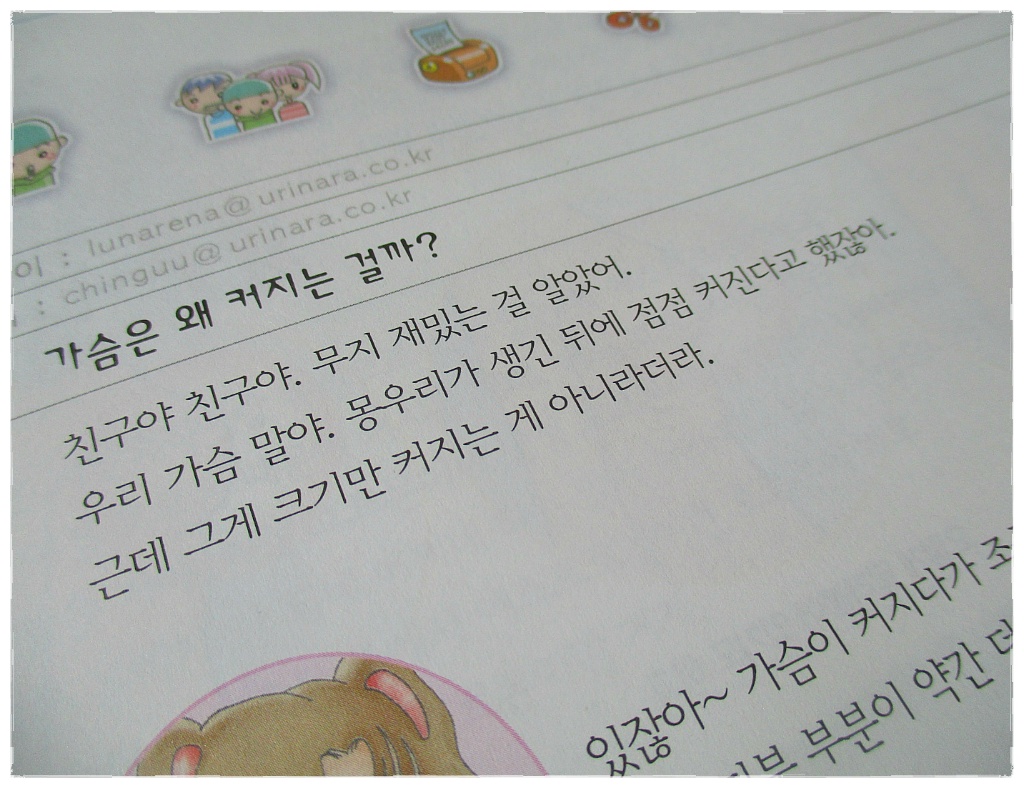 이 : lunarena@urinara.co.kr
: chinguu@urinara.co.kr
가슴은 왜 커지는 걸까?
친구야 친구야. 무지 재밌는 걸 알았어.
우리 가슴 말야. 몽우리가 생긴 뒤에 점점 커진다고 했잖아.
근데 그게 크기만 커지는 게 아니라더라.
있잖아~ 가슴이 커지다가
부분이 약간